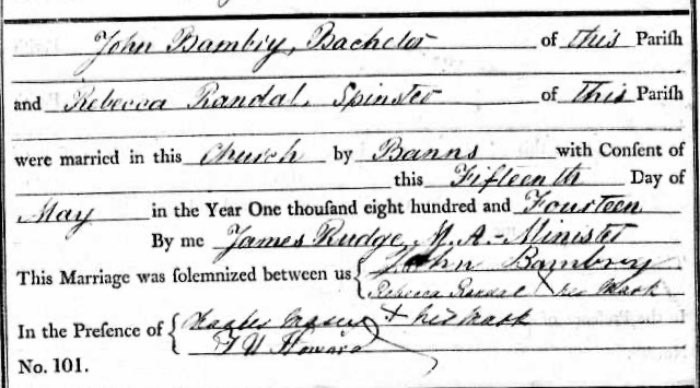 John Bambry, Bachelor of this Pariſh
and Rebecca Randal, Spinster of this Pariſh
were married in this Church by Banns with Conſent of
this Fifteenth Day of
May in the Year One thouſand eight hundred and Fourteen
By me James Rudge, M. A. - Miniſter
This Marriage was ſolemnized between us { John Bambrey
Rebecca Randal X her Mark
In the Preſence of { X his Mark
Howard
No. 101.